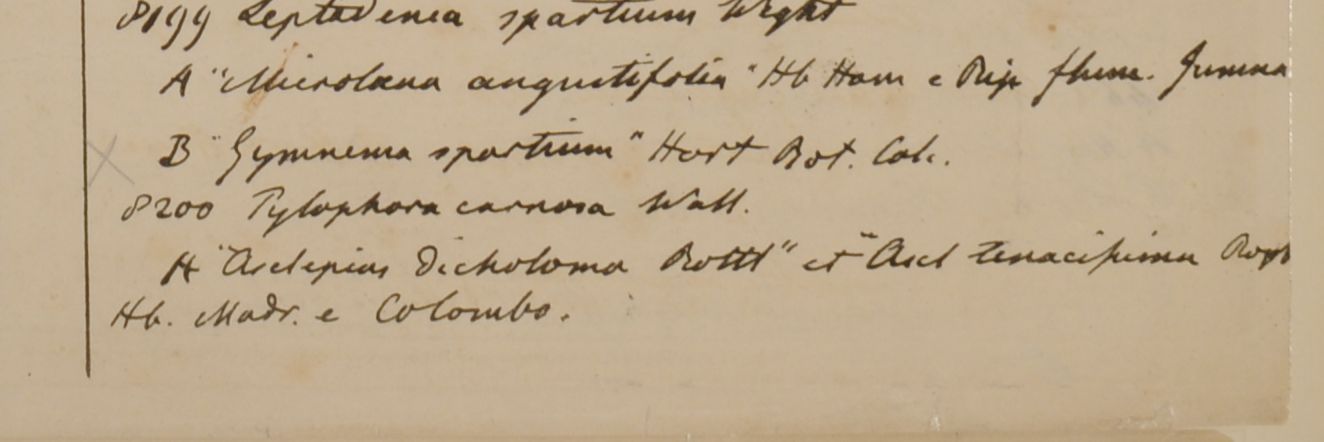 8199 Leptadenia spartium Wight
A "Microlæna angustifolia" Hb Ham e Rip flum. Jumna
B "Gymnema spartium" Hort Bot. Calc.
8200 Tylophora carnosa Wall.
A "Asclepias dichotoma Rottl" et "Ascl tenacissima Roxb
Hb. Madr. e Colombo.